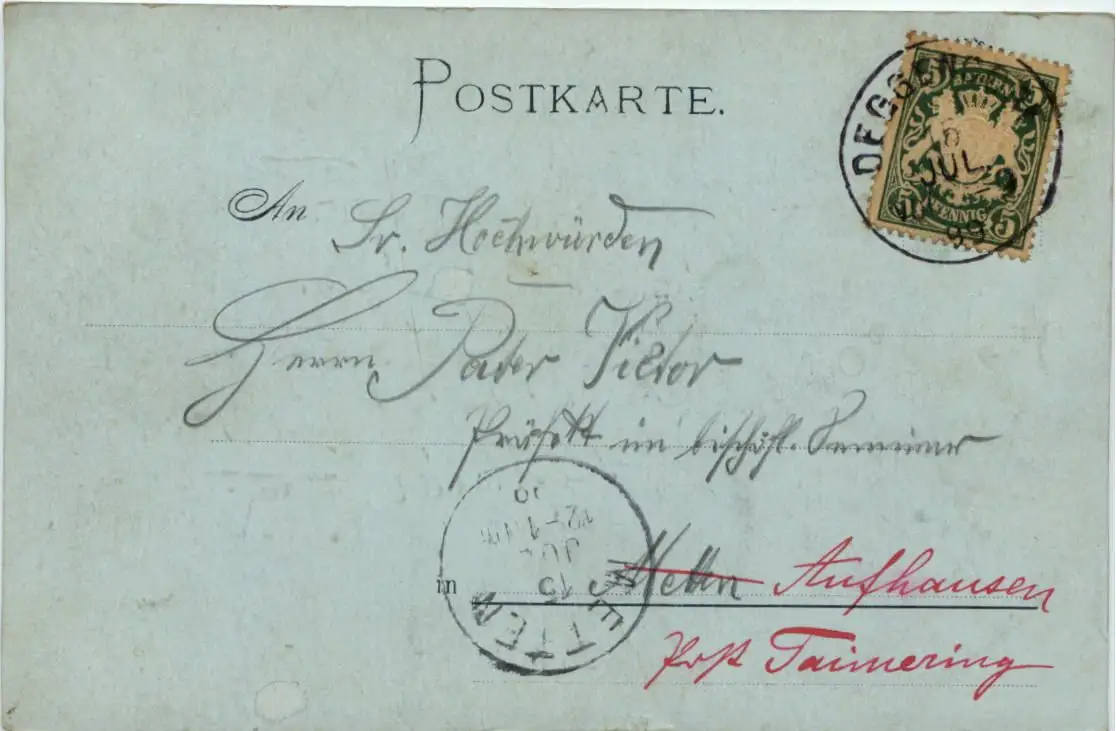 POSTKARTE.
BAYERN
5 5
PFENNIG 5
JUL.
99
An Sr. Hochwürden
Herrn Pater Victor
Präfekt im bischöfl. Seminar
12-1
JUL
13
METTEN
in Metten Aufhausen
Post Taimering